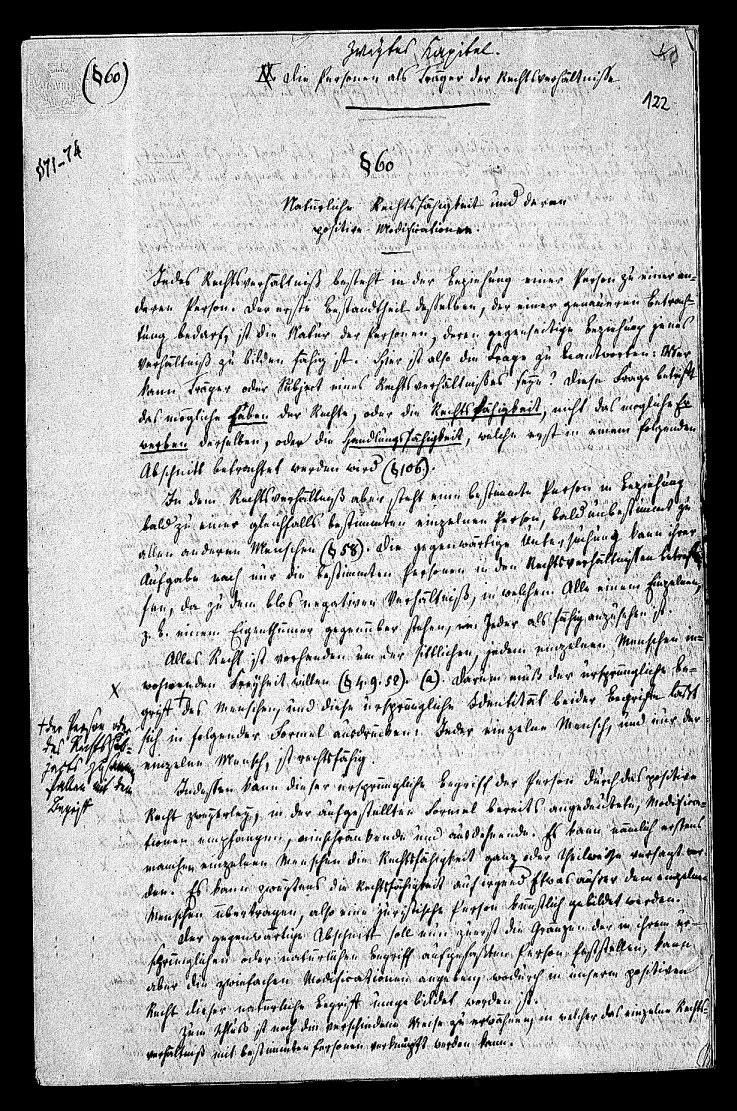 Zweytes Kapitel.
Die Personen als Träger der Rechtsverhältnisse
(§60)
122
§71-74
§60
Natürliche Rechtsfähigkeit und deren
positive Modificationen.
Jedes Rechtsverhältniß besteht in der Beziehung einer Person zu einer an-
deren Person. Der erste Bestandtheil desselben, der einer genaueren Betrach-
tung bedarf, ist die Natur der Personen, deren gegenseitige Beziehung jenes
Verhältniß zu bilden fähig ist. Hier ist also die Frage zu beantworten: Wer
kann Träger oder Subject eines Rechtsverhältnisses seyn? Diese Frage betrifft
das mögliche Haben der Rechte, oder die Rechtsfähigkeit, nicht das mögliche Er-
werben derselben, oder die Handlungsfähigkeit, welche erst in einem folgenden
Abschnitt betrachtet werden wird (§106).
In dem Rechtsverhältniß aber steht eine bestimmte Person in Beziehung
bald zu einer gleichfalls bestimmten einzelnen Person, bald unbestimmt zu
allen anderen Menschen (§58). Die gegenwärtige Untersuchung kann ihrer
Aufgabe nach nur die bestimmten Personen in den Rechtsverhältnissen betref-
fen, da zu dem blos negativen Verhältniß, in welchem Alle einem Einzelnen,
z. B. einem Eigenthümer gegenüber stehen, ein Jeder als fähig anzusehen ist.
Alles Recht ist vorhanden um der sittlichen, jedem einzelnen Menschen in-
wohnenden Freyheit willen (§4. 9. 52) (a). Darum muß der ursprüngliche Be-
griff + des Menschen, und diese ursprüngliche Identität beider Begriffe läßt
sich in folgender Formel ausdrücken: Jeder einzelne Mensch, und nur der
einzelne Mensch, ist rechtsfähig.
X
+ der Person oder
des Rechtssub-
jects zusammen
fallen mit dem
Begriff
Indessen kann dieser ursprüngliche Begriff der Person durch das positive
Recht zweyerley, in der aufgestellten Formel bereits angedeutete, Modifica-
tionen empfangen, einschränkende und ausdehnende. Es kann nämlich erstens
manchen einzelnen Menschen die Rechtsfähigkeit ganz oder theilweise versagt wer-
den. Es kann zweytens die Rechtsfähigkeit auf irgend Etwas außer dem einzelnen
Menschen übertragen, also eine juristische Person künstlich gebildet werden.
Der gegenwärtige Abschnitt soll nun zuerst die Gränzen der in ihrem ur-
sprünglichen oder natürlichen Begriff aufgefaßten Person feststellen, dann
aber die zweyfachen Modificationen angeben, wodurch in unserem positiven
Recht dieser natürliche Begriff umgebildet worden ist.
Zum Schluß ist noch die verschiedene Weise zu erwähnen, in welcher das einzelne Rechts-
verhältniß mit bestimmten Personen verknüpft werden kann.